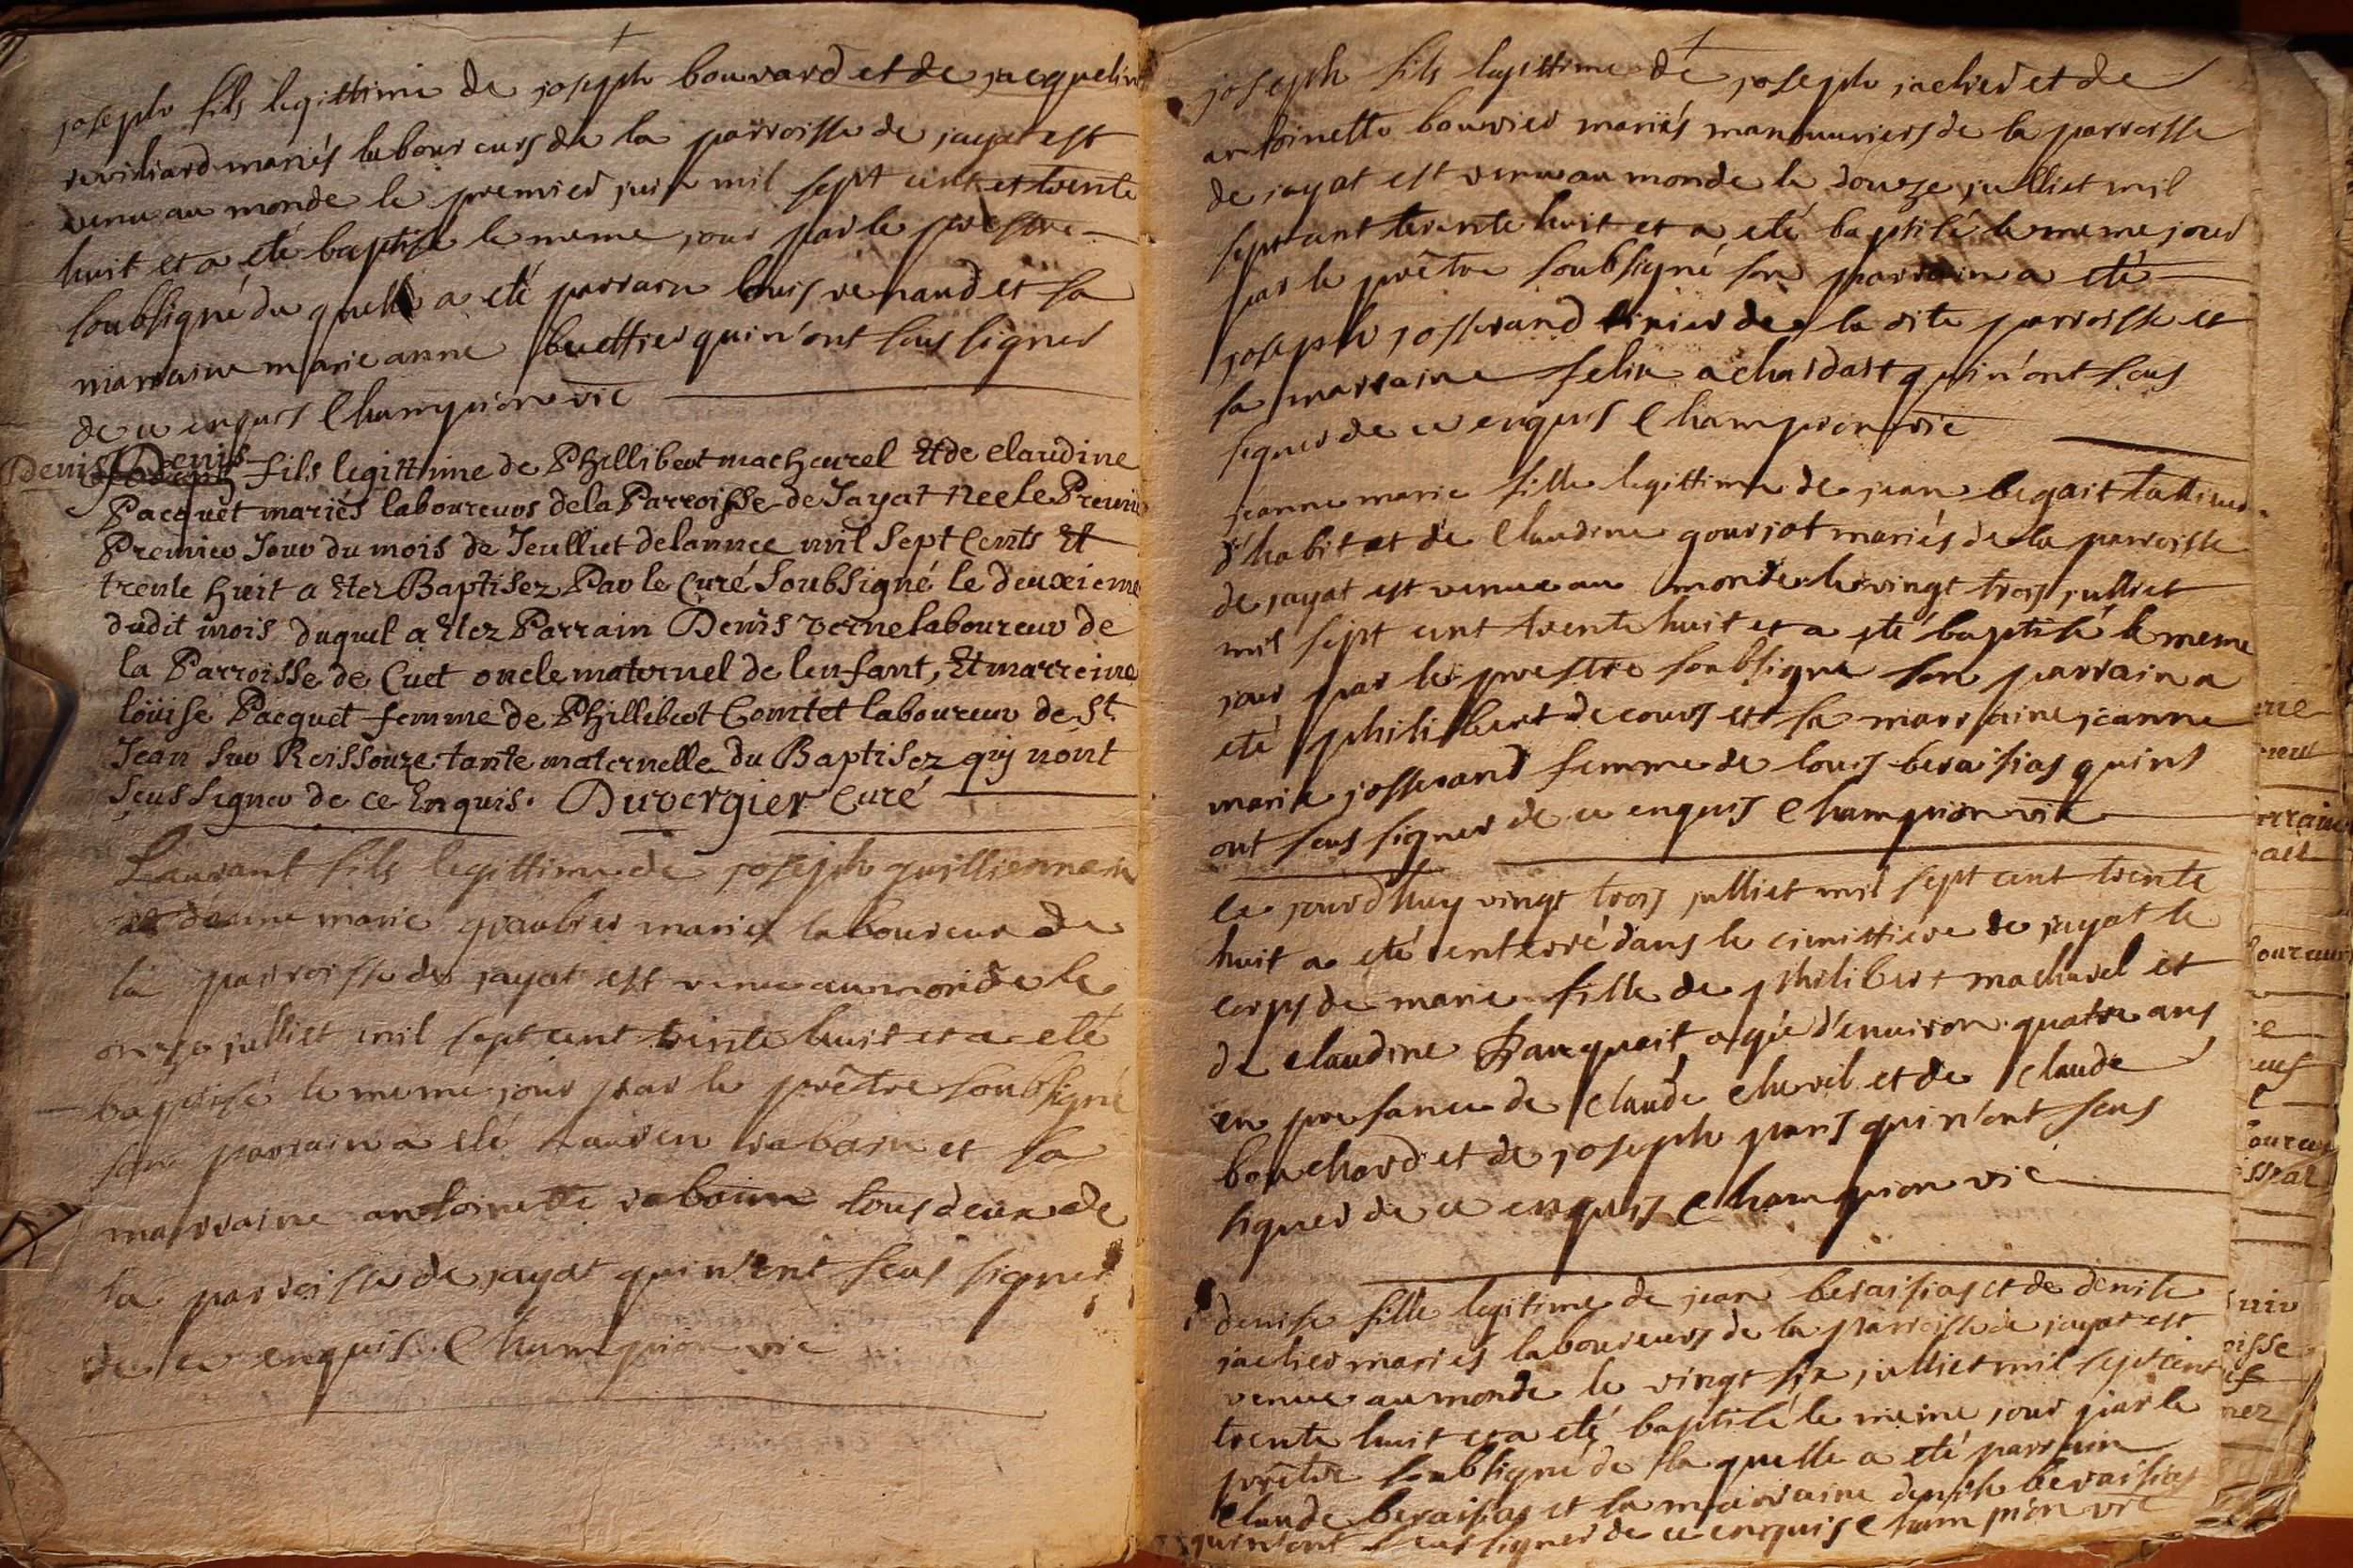 joseph fils legittime de joseph bouvard et de jacqueline
reviliard mariés laboureurs de la parroisse de jayat est
venu au monde le premier juin mil sept cent et trente
huit et a eté baptisé le meme jour par le prestre
soubsigné du quel a eté parrain louis renaud et sa
marraine marie anne buettier qui n'ont sceus signer
de ce enquis Championvic
Denis Denis fils legittime de Phillibert macheurel Et de Claudine
Pacquet mariés laboureurs de la Parroisse de Jayat nee le Premie
Premier Jour du mois de Jeulliet de lannee mil Sept Cents Et
trente huit a Etez Baptisez Par le Curé Soubsigné le deuxieme
dudit mois duquel a Etez Parrain Denis verne laboureur de
la Parroisse de Cuet oncle maternel de lenfant, Et marreine
loüise Pacquet femme de Phillibert Comtet laboureur de St.
Jean Sur Reissouze tante maternelle du Baptisez quj nont
Sceus Signer de ce Enquis. Duvergier Curé
Laurant fils legittime de joseph guilliermin
et de anne marie graubier mariés laboureur de
la parroisse de jayat est venu au monde le
onze julliet mil sept cent trente huit et a eté
baptisé le meme jour par le prêtre soubsigné
son parrain a eté Lauren rabain et sa
marraine antoinette raboin tous deux de
la parroisse de jayat qui n'ont sceus signer
de ce enquis. Championvic
joseph fils legittime de joseph jaclier et de
antoinette bouvier mariés manouvriers de la parroisse
de jayat est venu au monde le douze julliet mil
sept cent trente huit et a eté baptisé le meme jour
par le prêtre soubsigné son parrain a eté
joseph josserand de la dite parroisse et
sa marraine felix achardat qui n'ont sceus
signer de ce enquis Championvic
jeanne marie fille legittime de jean begait tallieur
d'habit et de Claudine gourjot mariés de la parroisse
de jayat est venue au monde le vingt trois julliet
mil sept cent trente huit et a eté baptisé le meme
jour par le prestre soubsigné son parrain a
eté philibert decours et sa marraine jeanne
marie josserand femme de louis beraisias qui ns
ont sceus signer de ce enquis Championvic
ce jourdhuy vingt trois julliet mil sept cent trente
huit a eté enterré dans le cimittiere de jayat le
corps de marie fille de philibert machurel et
de Claudine Pacquait agée d'environ quatre ans
en presance de Claude Chevril et de Claude
bouchard et de joseph paris qui n'ont sceus
signer de ce enquis Championvic
denise fille legitime de jean beraisias et de denise
jaclier mariés laboureurs de la parroisse de jayat est
venue au monde le vingt six julliet mil sept cent
trente huit et a eté baptisé le meme jour par le
prêtre soubsigné de la quelle a eté parrain
Claude beraisias et sa marraine denise beraisias
qui n'ont sceus signer de ce enquis Championvic